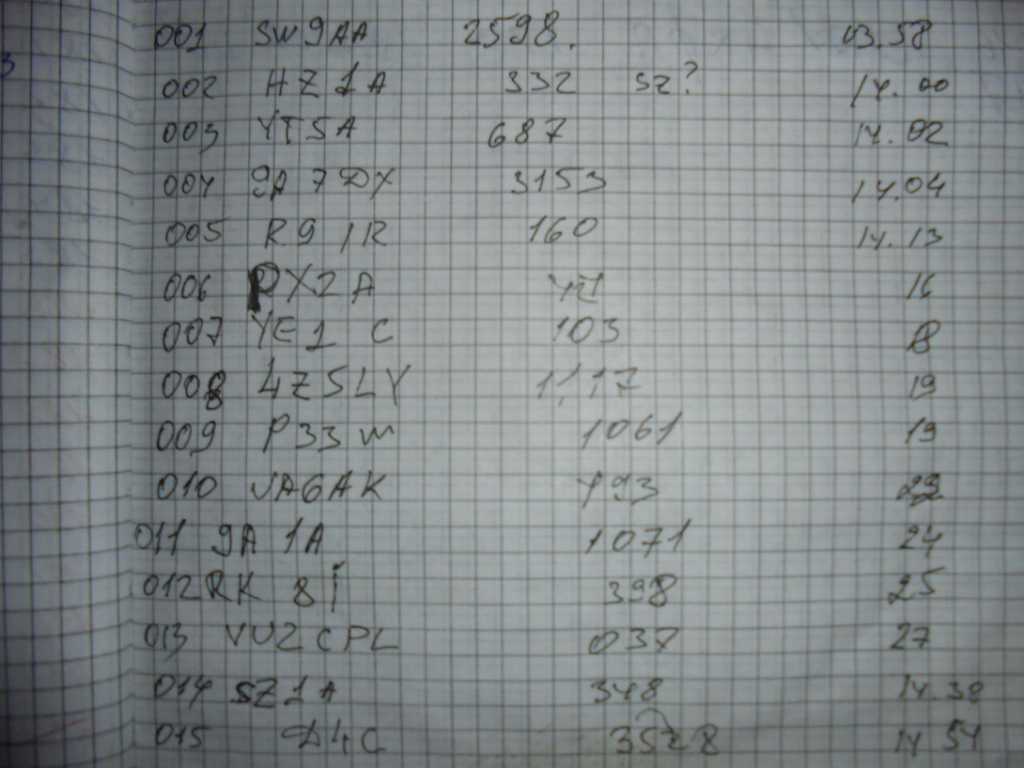 001 SW9AA 2598. 03.58
002 HZ1A 332 SZ? 14.00
003 YT5A 687 14.02
004 9A7DX 3153 14.04
005 R9IR 160 14.13
006 RX2A 16
007 YE1C 103 18
008 4Z5LY 1117 19
009 P33W 1061 19
010 UA6AK 793
011 9A1A 1071 24
012 RK8I 398 25
013 VU2CPL 037 27
014 SZ1A 348 14.30
015 D4C 14 54